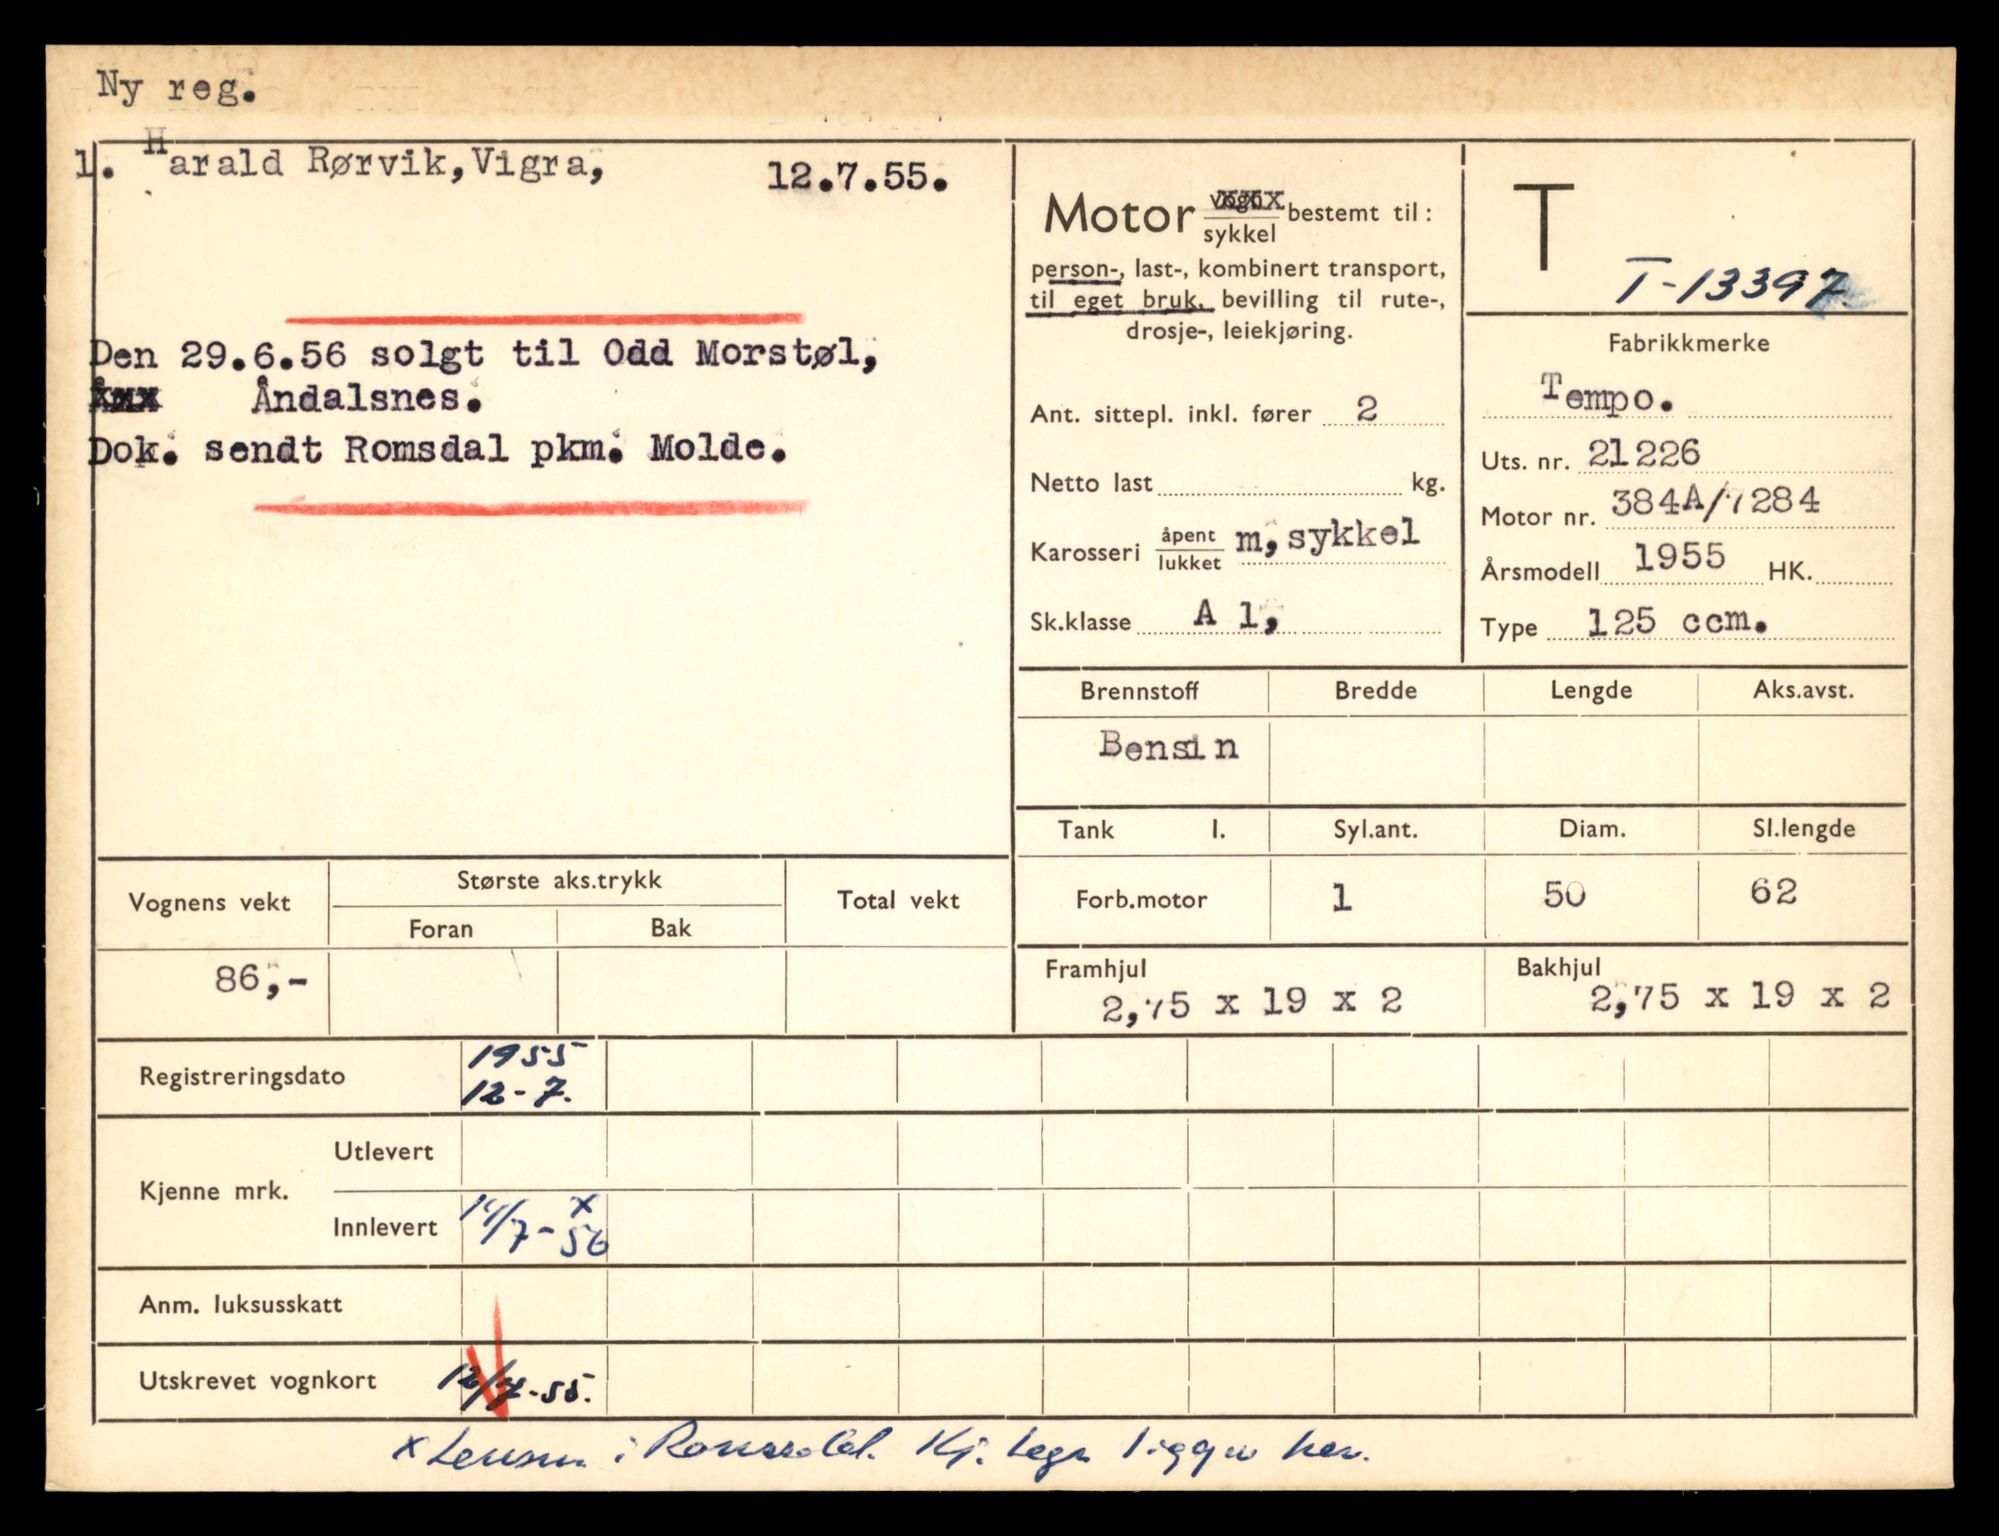 Ny reg.
1. Harald Rørvik, Vigra, 12.7.55.
Den 29.6.56 solgt til Odd Morstøl,
Åndalsnes.
Dok. sendt Romsdal pkm. Molde.
Motor vogn/sykkel bestemt til:
person-, last-, kombinert transport,
til eget bruk, bevilling til rute-,
drosje-, leiekjøring.
Ant. sittepl. inkl. fører 2
Netto last kg.
Karosseri åpent/lukket m, sykkel
Sk.klasse A 1,
T
T-13397
Fabrikkmerke
Tempo.
Uts. nr. 21226
Motor nr. 384A/7284
Årsmodell 1955 HK.
Type 125 ccm.
Brennstoff Bredde Lengde Aks.avst.
Bensin
Tank l. Syl.ant. Diam. Sl.lengde
Forb.motor 1 50 62
Framhjul Bakhjul
2,75 x 19 x 2 2,75 x 19 x 2
Vognens vekt Største aks.trykk Total vekt
Foran Bak
86,-
Registreringsdato 1955
12-7.
Kjenne mrk. Utlevert
Innlevert 14/7-56 x
Anm. luksusskatt
Utskrevet vognkort 12/7-55.
x i Romsdal. Kj. tegn ligger her.